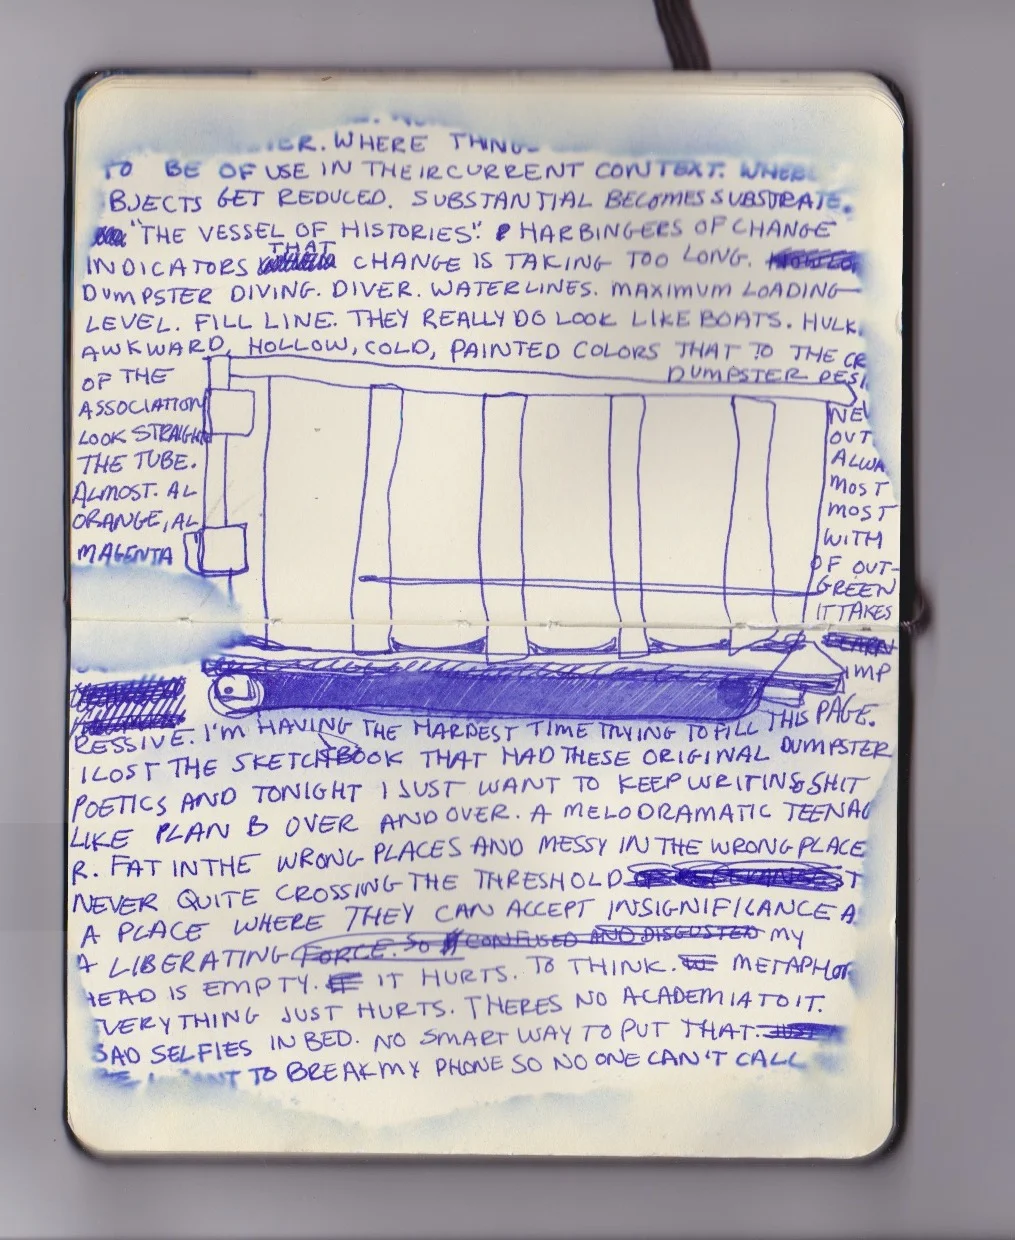 WHERE
TO BE OF USE IN THEIR CURRENT CONTEXT.
BJECTS GET REDUCED. SUBSTANTIAL BECOMES SUBSTRATE.
"THE VESSEL OF HISTORIES". HARBINGERS OF CHANGE
INDICATORS THAT CHANGE IS TAKING TOO LONG.
DUMPSTER DIVING. DIVER. WATERLINES. MAXIMUM LOADING
LEVEL. FILL LINE. THEY REALLY DO LOOK LIKE BOATS. HULK,
AWKWARD, HOLLOW, COLD, PAINTED COLORS THAT TO THE CR
DUMPSTER DESI
OF THE
ASSOCIATION
LOOK STRAIGH
THE TUBE.
ALMOST. AL
ORANGE, AL
MAGENTA
NE
OUT
ALWA
MOST
MOST
WITH
OF OUT-
GREEN
IT TAKES
IMP
THIS PAGE.
RESSIVE. I'M HAVING THE HARDEST TIME TRYING TO FILL
I LOST THE SKETCHBOOK THAT HAD THESE ORIGINAL DUMPSTER
POETICS AND TONIGHT I JUST WANT TO KEEP WRITING SHIT
LIKE PLAN B OVER AND OVER. A MELODRAMATIC TEENAG
R. FAT IN THE WRONG PLACES AND MESSY IN THE WRONG PLACE
NEVER QUITE CROSSING THE THRESHOLD T
A PLACE WHERE THEY CAN ACCEPT INSIGNIFICANCE A
A LIBERATING FORCE. SO CONFUSED AND DISGUSTED MY
HEAD IS EMPTY. IT HURTS. TO THINK. METAPHOR
VERYTHING JUST HURTS. THERES NO ACADEMIA TO IT.
SAD SELFIES IN BED. NO SMART WAY TO PUT THAT.
TO BREAK MY PHONE SO NO ONE CAN'T CALL